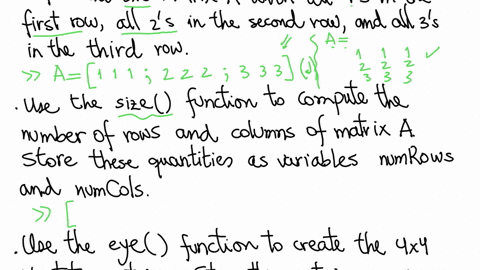 first row, all 2's in the second row, and all 3's
in the third row.
A=
1 1 1
2 2 2
3 3 3
>> A=[1 1 1 ; 2 2 2 ; 3 3 3] (↵)
• Use the size() function to compute the
number of rows and columns of matrix A.
Store these quantities as variables numRows
and numCols.
>> [
• Use the eye() function to create the 4x4